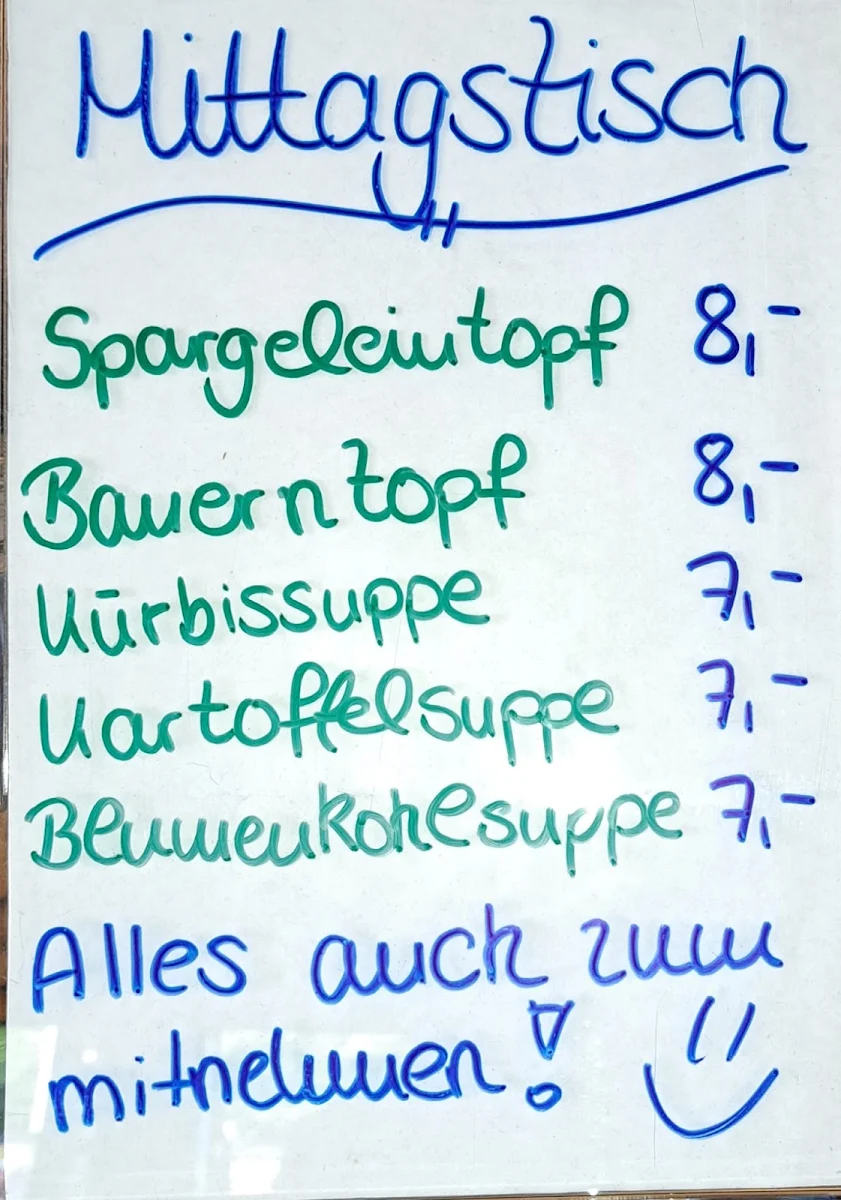 Mittagstisch
Spargeleintopf 8,-
Bauerntopf 8,-
Kürbissuppe 7,-
Kartoffelsuppe 7,-
Blumenkohlsuppe 7,-
Alles auch zum
mitnehmen!